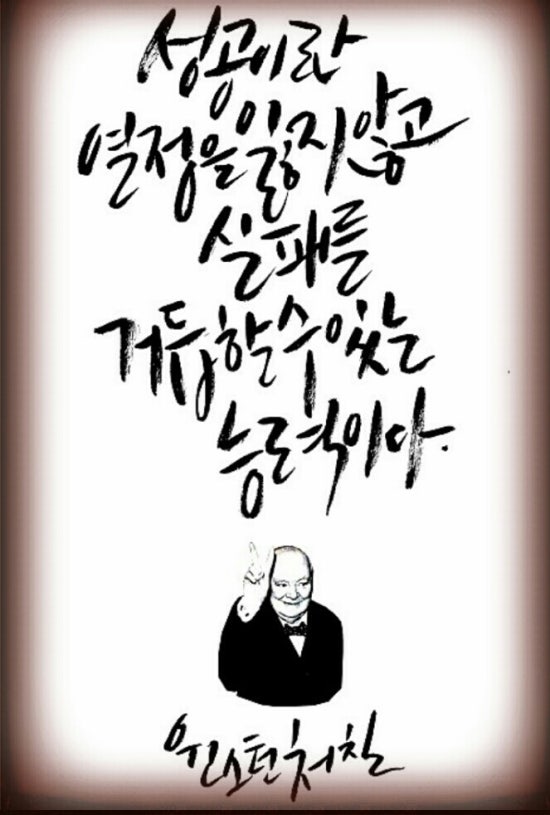 성공이란
열정을 잃지 않고
실패를
거듭할 수 있는
능력이다.
윈스턴 처칠